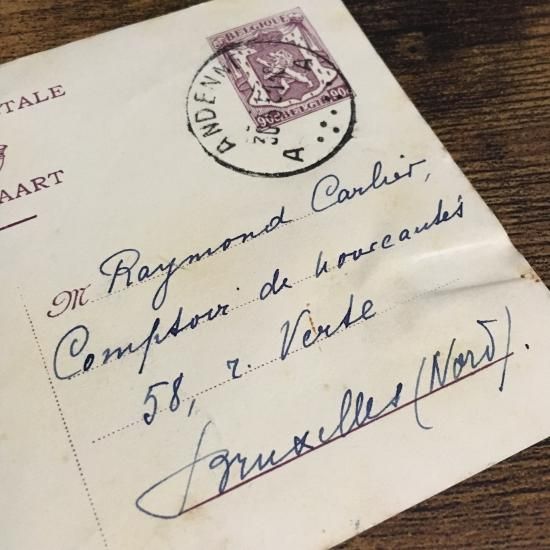 TALE
AART
BELGIQUE
90c BELGIE 90c
ANDENN
A
A
M Raymond Carlier,
Comptoir de nouveautés
58, r. Verte
Bruxelles (Nord).